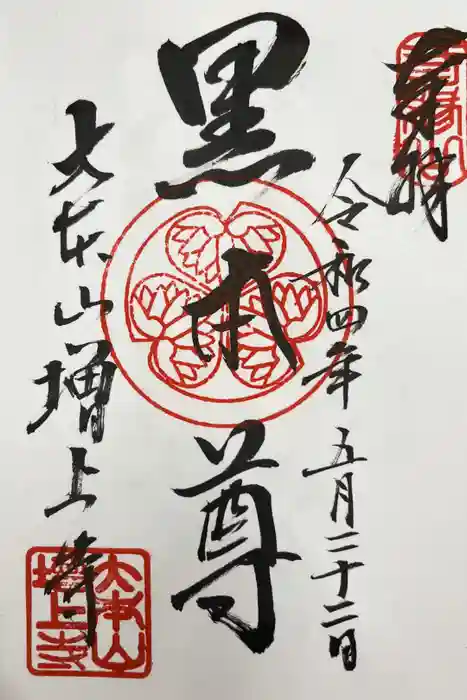 奉拝
令和四年五月二十二日
黒本尊
大本山増上寺
大本山
増上寺